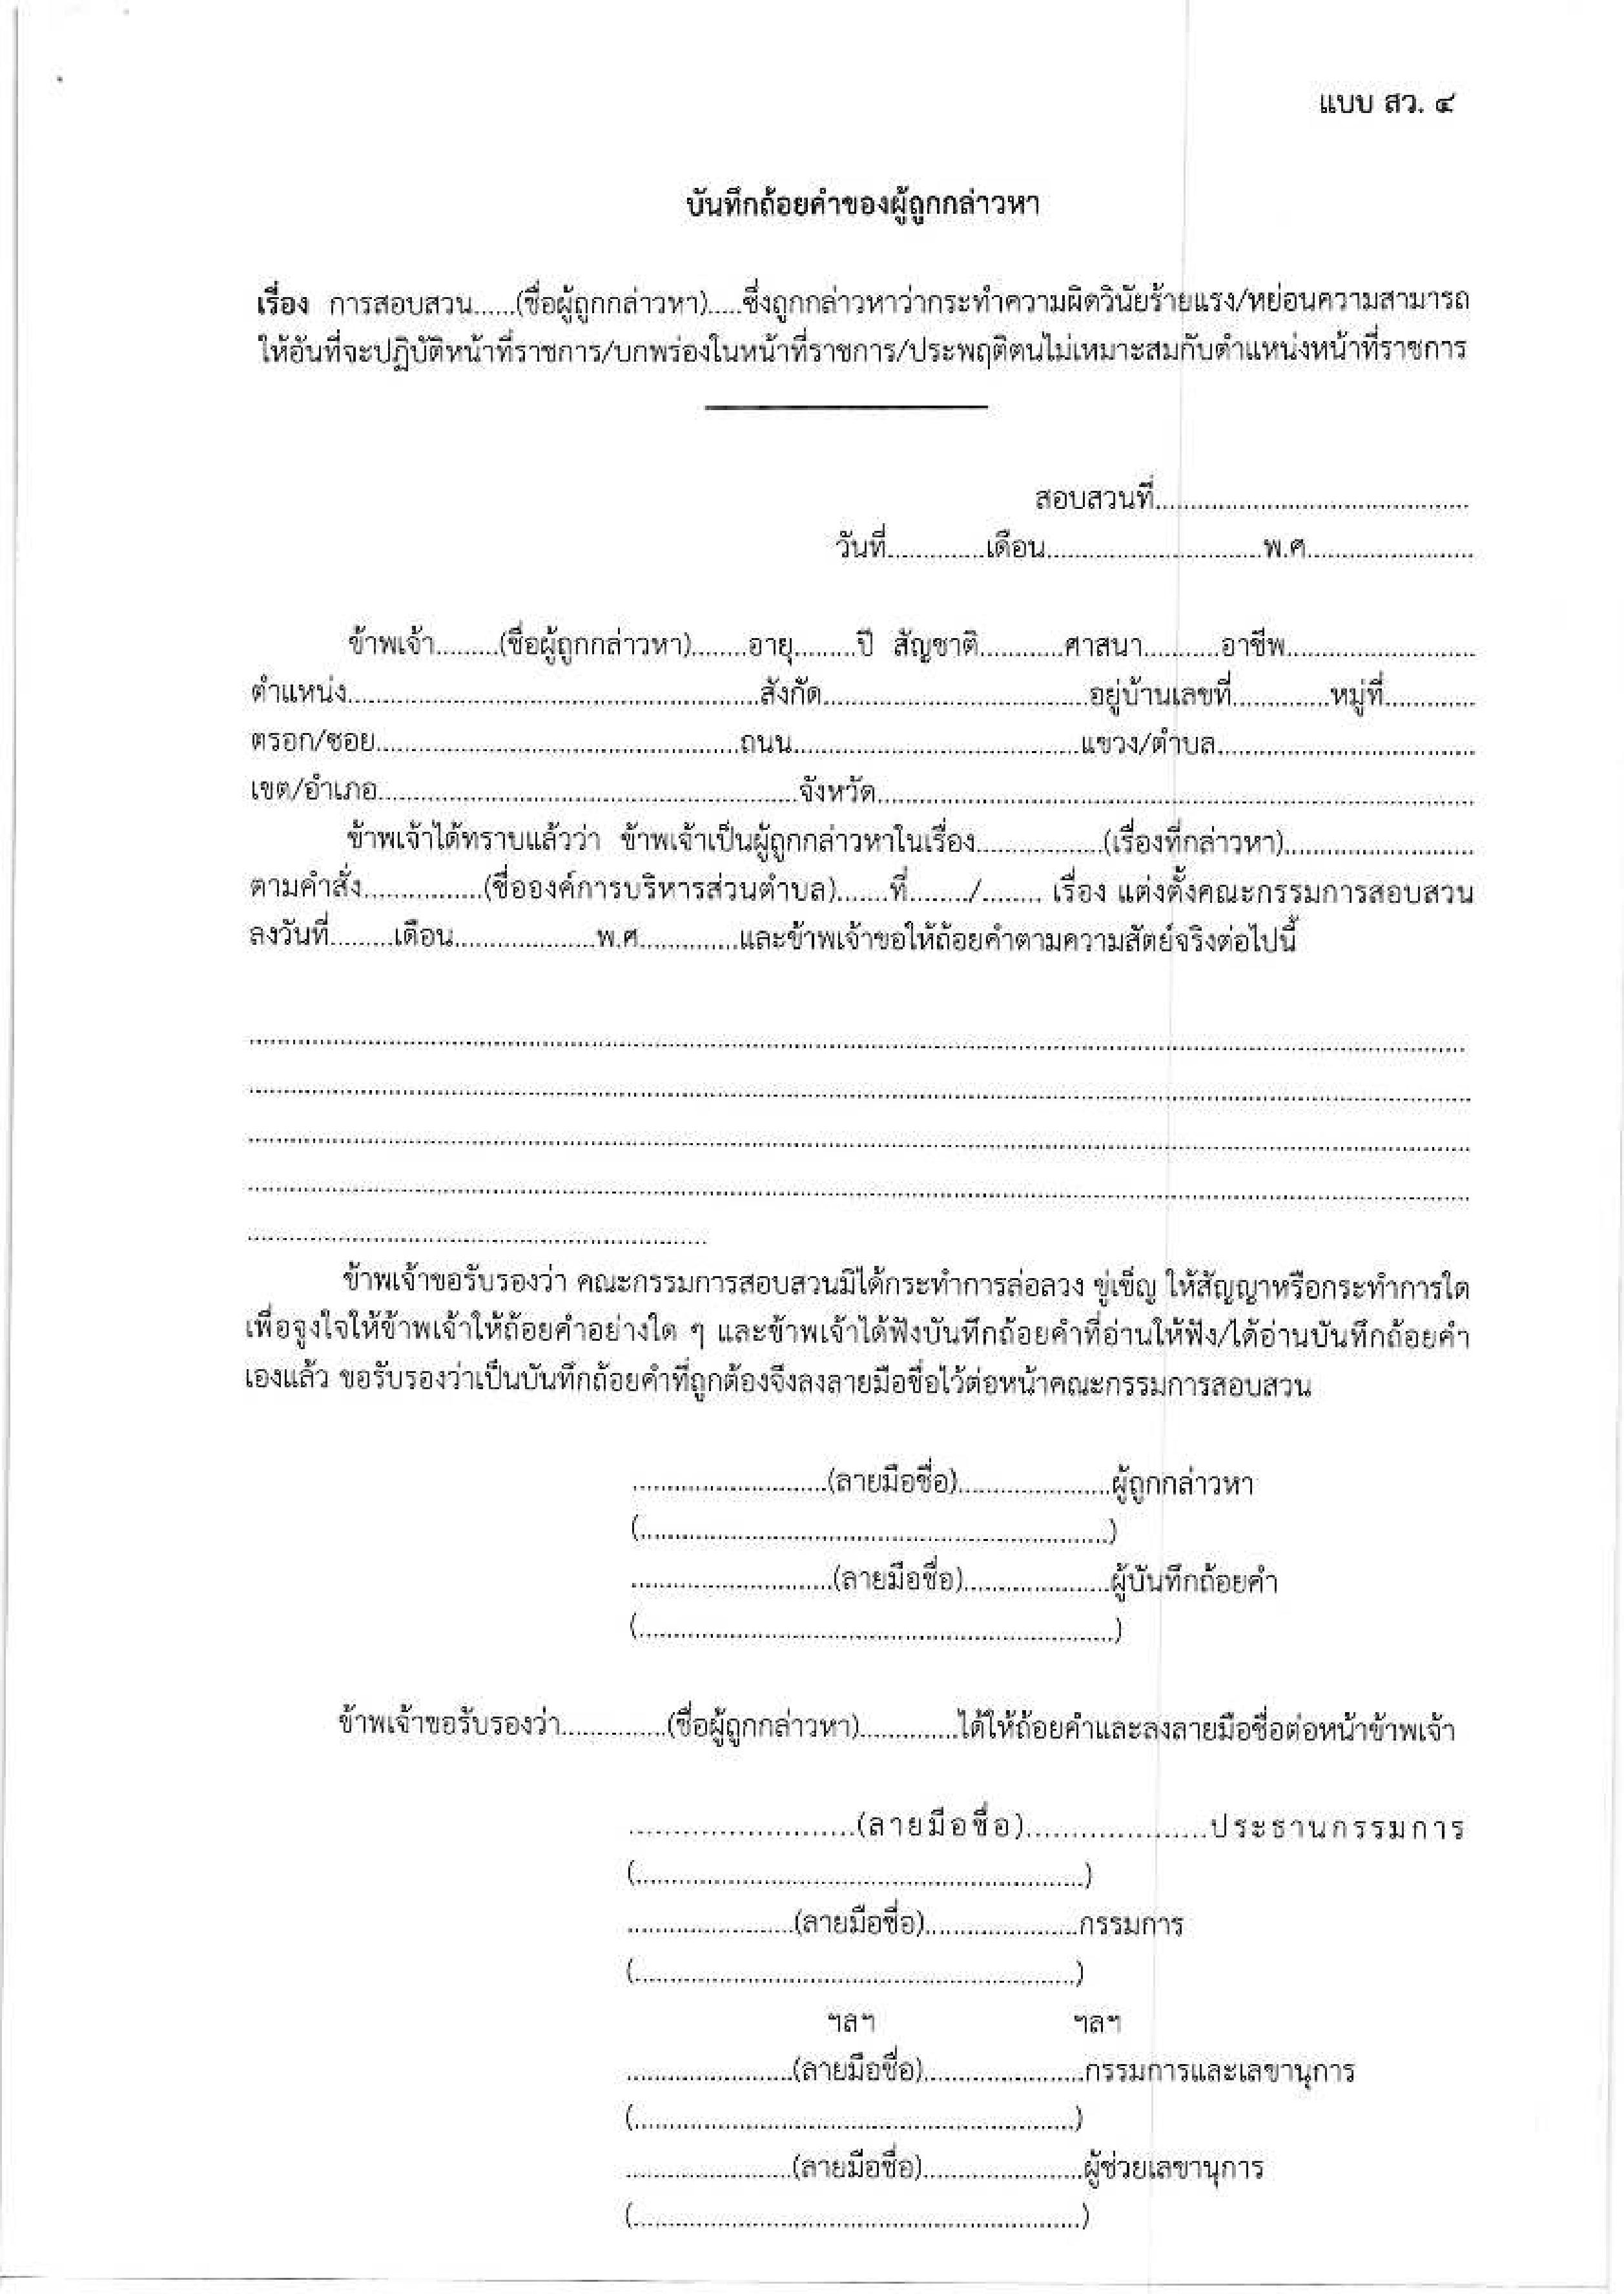 แบบ สว. ๔
บันทึกถ้อยคำของผู้ถูกกล่าวหา
เรื่อง การสอบสวน......(ชื่อผู้ถูกกล่าวหา).....ซึ่งถูกกล่าวหาว่ากระทำความผิดวินัยร้ายแรง/หย่อนความสามารถ
ให้อันที่จะปฏิบัติหน้าที่ราชการ/บกพร่องในหน้าที่ราชการ/ประพฤติตนไม่เหมาะสมกับตำแหน่งหน้าที่ราชการ
สอบสวนที่.............................................
วันที่..............เดือน...............................พ.ศ........................
ข้าพเจ้า.........(ชื่อผู้ถูกกล่าวหา)........อายุ.........ปี สัญชาติ............ศาสนา...........อาชีพ...........................
ตำแหน่ง...........................................................สังกัด......................................อยู่บ้านเลขที่..............หมู่ที่.............
ตรอก/ซอย....................................................ถนน.........................................แขวง/ตำบล.....................................
เขต/อำเภอ............................................................จังหวัด......................................................................................
ข้าพเจ้าได้ทราบแล้วว่า ข้าพเจ้าเป็นผู้ถูกกล่าวหาในเรื่อง..................(เรื่องที่กล่าวหา)...........................
ตามคำสั่ง.................(ชื่อองค์การบริหารส่วนตำบล).......ที่......../......... เรื่อง แต่งตั้งคณะกรรมการสอบสวน
ลงวันที่.........เดือน....................พ.ศ..............และข้าพเจ้าขอให้ถ้อยคำตามความสัตย์จริงต่อไปนี้
................................................................................................................................................................
................................................................................................................................................................
................................................................................................................................................................
................................................................................................................................................................
..................................................................
ข้าพเจ้าขอรับรองว่า คณะกรรมการสอบสวนมิได้กระทำการล่อลวง ขู่เข็ญ ให้สัญญาหรือกระทำการใด
เพื่อจูงใจให้ข้าพเจ้าให้ถ้อยคำอย่างใด ๆ และข้าพเจ้าได้ฟังบันทึกถ้อยคำที่อ่านให้ฟัง/ได้อ่านบันทึกถ้อยคำ
เองแล้ว ขอรับรองว่าเป็นบันทึกถ้อยคำที่ถูกต้องจึงลงลายมือชื่อไว้ต่อหน้าคณะกรรมการสอบสวน
............................(ลายมือชื่อ)......................ผู้ถูกกล่าวหา
(....................................................................)
.............................(ลายมือชื่อ).....................ผู้บันทึกถ้อยคำ
(....................................................................)
ข้าพเจ้าขอรับรองว่า...............(ชื่อผู้ถูกกล่าวหา)..............ได้ให้ถ้อยคำและลงลายมือชื่อต่อหน้าข้าพเจ้า
..........................(ลายมือชื่อ).....................ประธานกรรมการ
(................................................................)
........................(ลายมือชื่อ)......................กรรมการ
(...............................................................)
ฯลฯ ฯลฯ
........................(ลายมือชื่อ).......................กรรมการและเลขานุการ
(...............................................................)
........................(ลายมือชื่อ).......................ผู้ช่วยเลขานุการ
(................................................................)